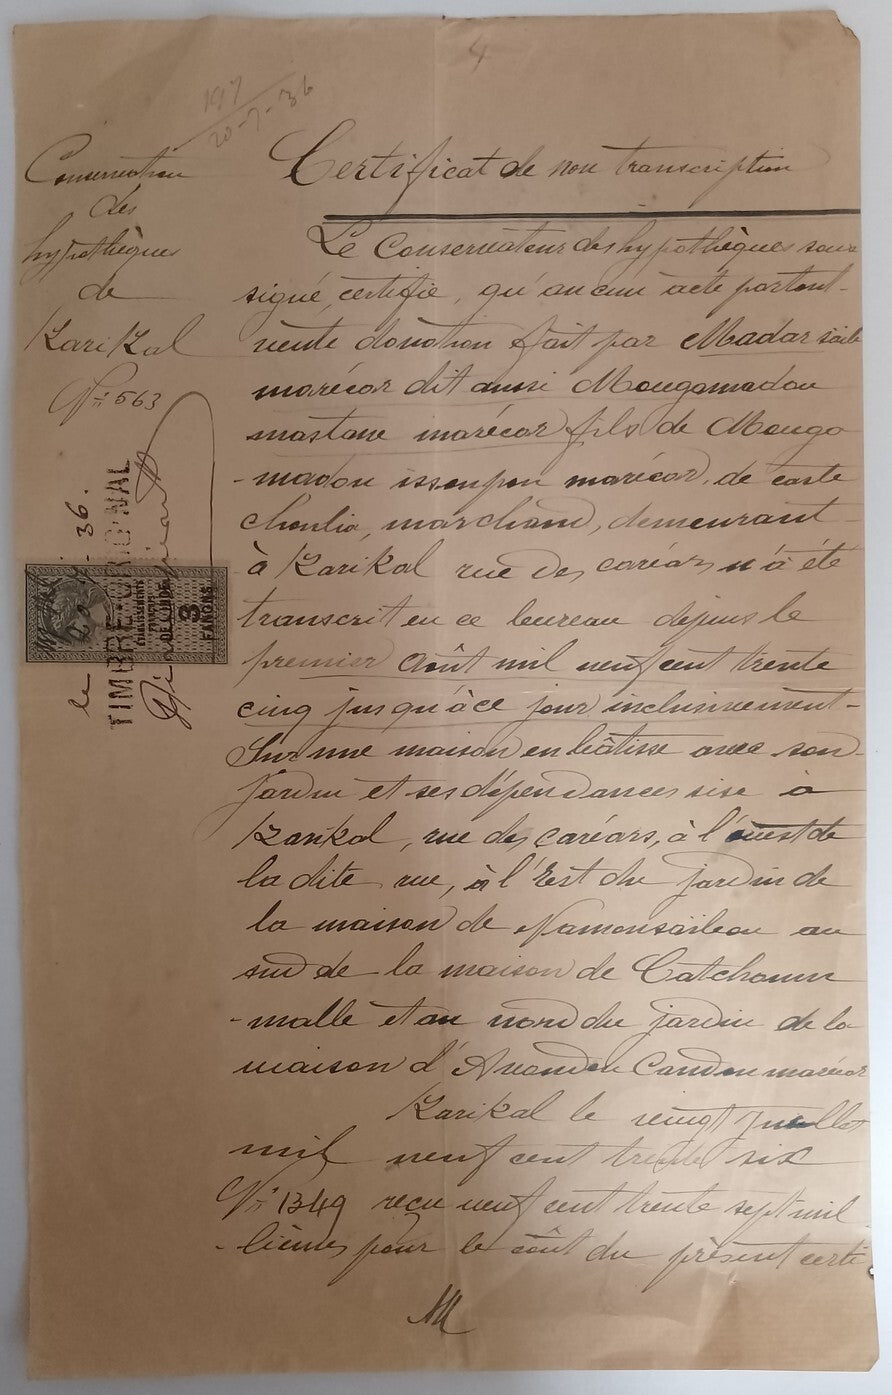 4
197
20-7-36
Conservation
des
hypothèques
de
Karikal
N° 563
Certificat de non transcription
Le Conservateur des hypothèques sous
signé, certifie, qu'aucun acte portant-
vente donation fait par Madar saïb
marécar dit aussi Mougamadou
mastane marécar fils de Mouga
-madou issoupou marécar, de caste
choulia, marchand, demeurant-
à Karikal rue des caréars n'a été
transcrit en ce bureau depuis le
premier Août mil neuf cent trente
cinq jusqu'à ce jour inclusivement-
Sur une maison en bâtisse avec son
Jardin et ses dépendances sise à
Karikal, rue des caréars, à l'ouest de
la dite rue, à l'Est du jardin de
la maison de au
sud de la maison de Catchoum
-malle et au nord du jardin de la
maison d' Candou marécar
Karikal le vingt Juillet
mil neuf cent trente six
N° 1349 reçu neuf cent trente sept mil
-lièmes pour le coût du présent certi
le 36.
TIMBRE ORIGINAL
ÉTABLISSEMENTS
FRANÇAIS
DE L'INDE
3
FANONS